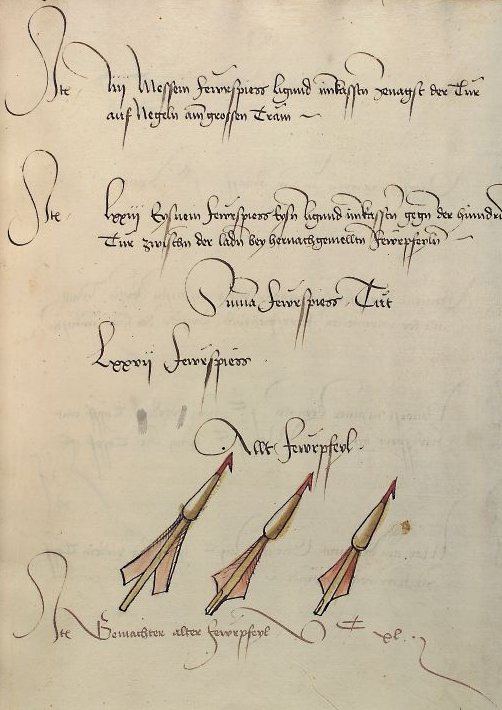 Ite iiii Messein fewrspiess ligend in kassten zenagst der Tür
auf Negeln am grossen Tram
Ite Lxxiij Eysnein fewrspiess eysn ligend in kassten gegen der hundern
Tür zwischn der ladn bey hernachgemelltn fewrpfeyln
Suma fewrspiess Tüt
Lxxvij fewrspiess
Allt fewrpfeyl
Ite Gemachter alter fewrpfeyl V C xl